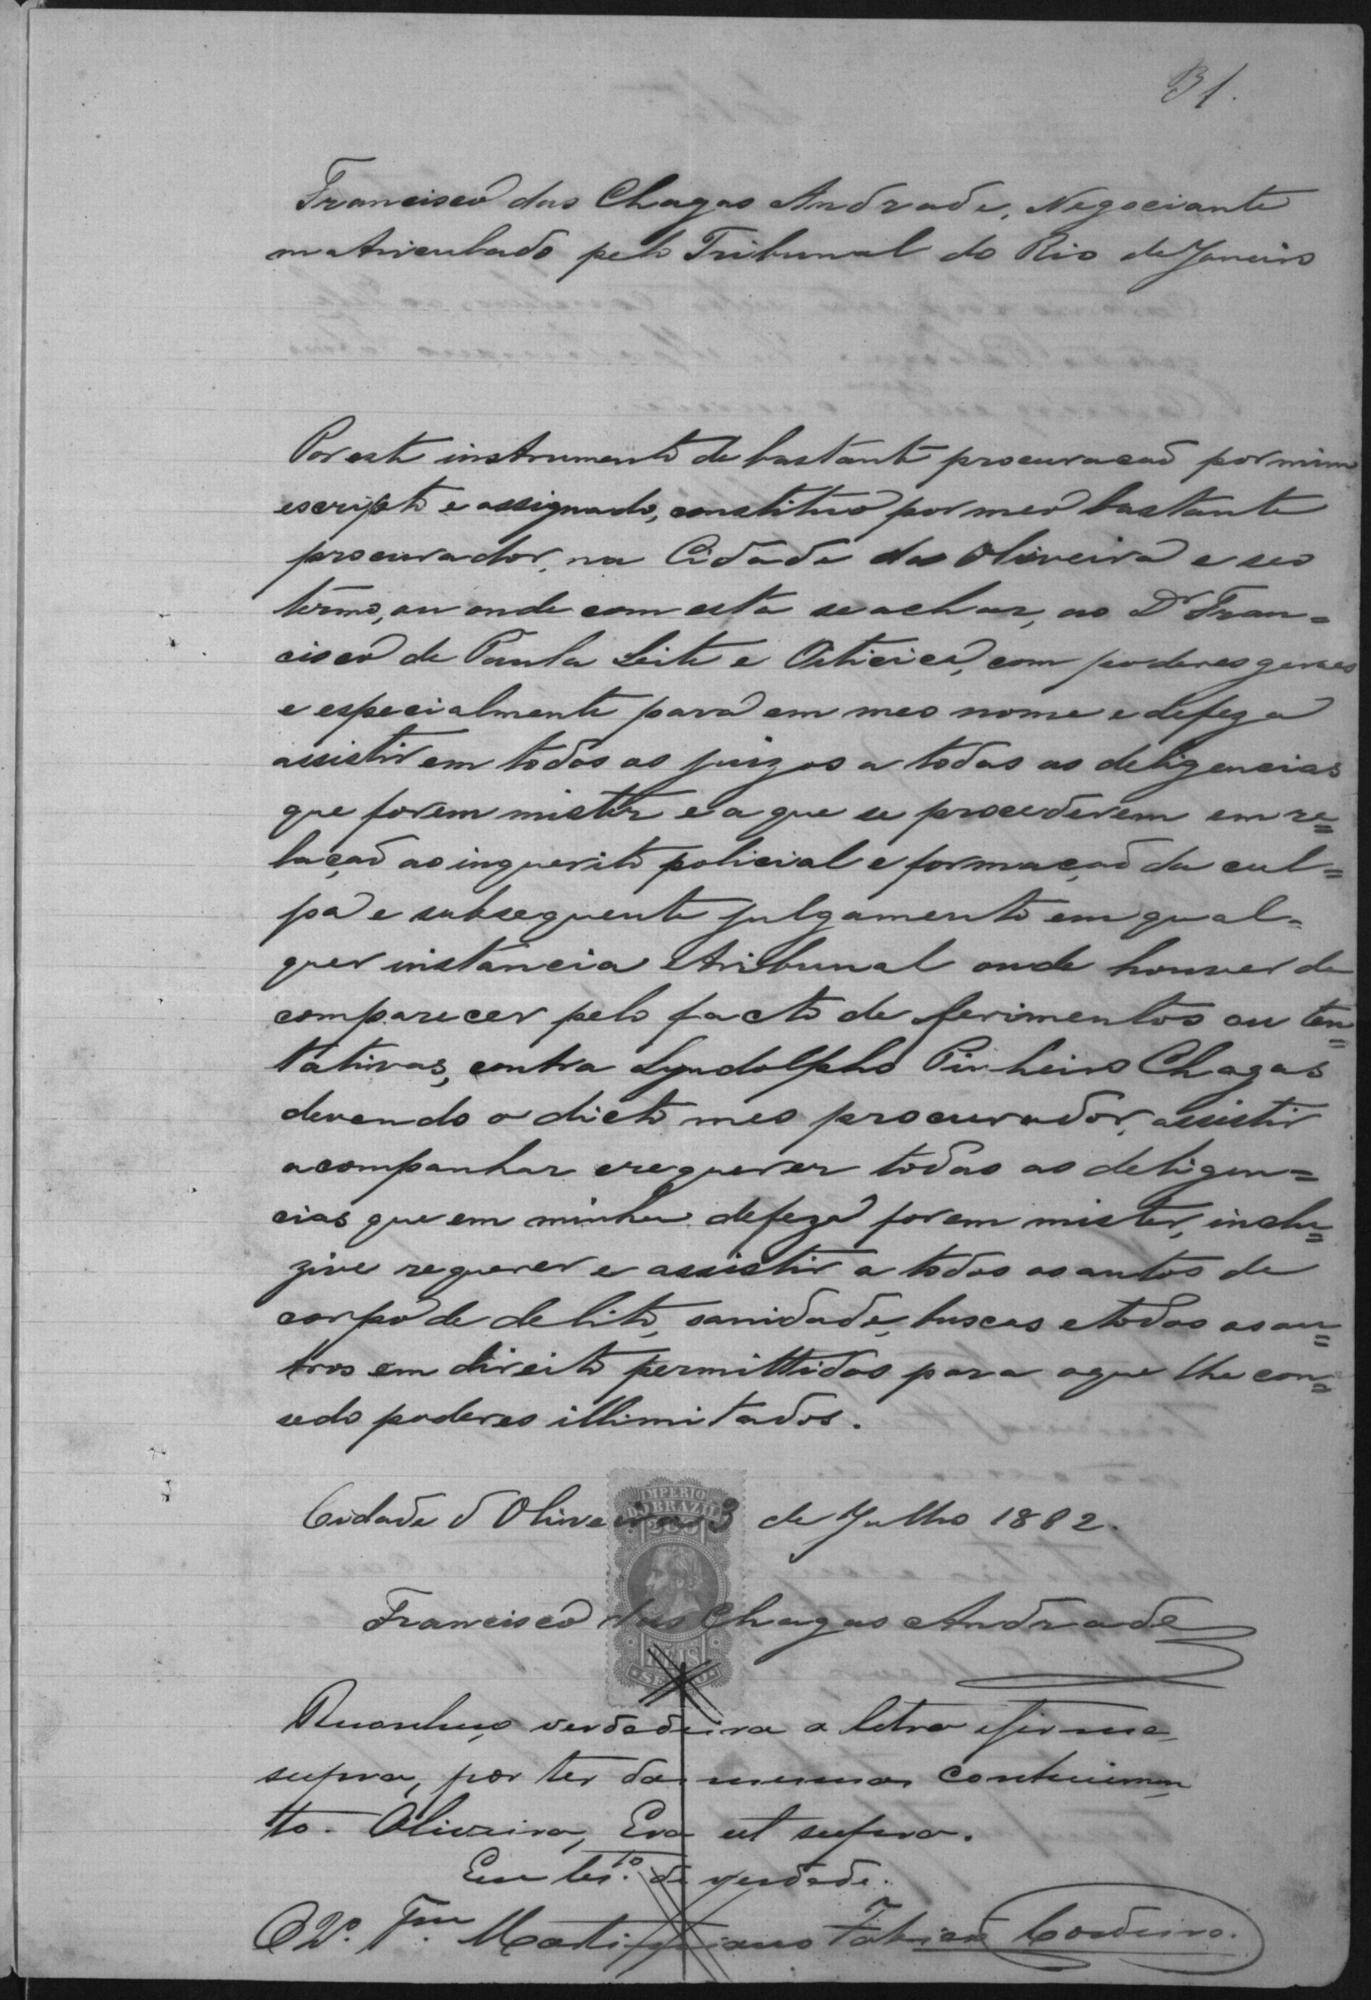 31.
Francisco das Chagas Andrade, Negociante
matriculado pelo Tribunal do Rio de Janeiro
Por este instrumento de bastante procuração por mim
escripto e assignado, constituo por meo bastante
procurador, na Cidade das Oliveira e seo
têrmo, ou onde com esta se achar, ao Dr. Fran=
cisco de Paula Leite e Oiticica, com poderes geraes
e especialmente para em meo nome e defeza
assistir em todos os juizos a todas as deligencias
que forem mister e a que se procederem em re=
lação ao inquerito policial e formação da cul=
pa e subsequente julgamento em qual=
quer instância e tribunal onde houver de
comparecer pelo facto de ferimentos ou ten=
tativas, contra Lyndolpho Pinheiro Chagas
devendo o dicto meo procurador, assistir
acompanhar e requerer todas as deligen=
cias que em minha defeza forem mister, inclu=
zive requerer e assistir a todos os autos de
corpo de delito, sanidade, buscas e todos os ou=
tros em direito permittidos para o que lhe con=
sedo poderes illimitados.
IMPERIO
DO BRAZIL
200
Cidade d Oliveira 3 de Julho 1882.
Francisco das Chagas Andrade
REIS
SELLO
Reconheço verdadeira a letra e firma
supra, por ter das mesmas conhecimen
to. Oliveira, Era ut supra.
Em tes.to de verdade.
Martiniano Fabian Cordeiro.